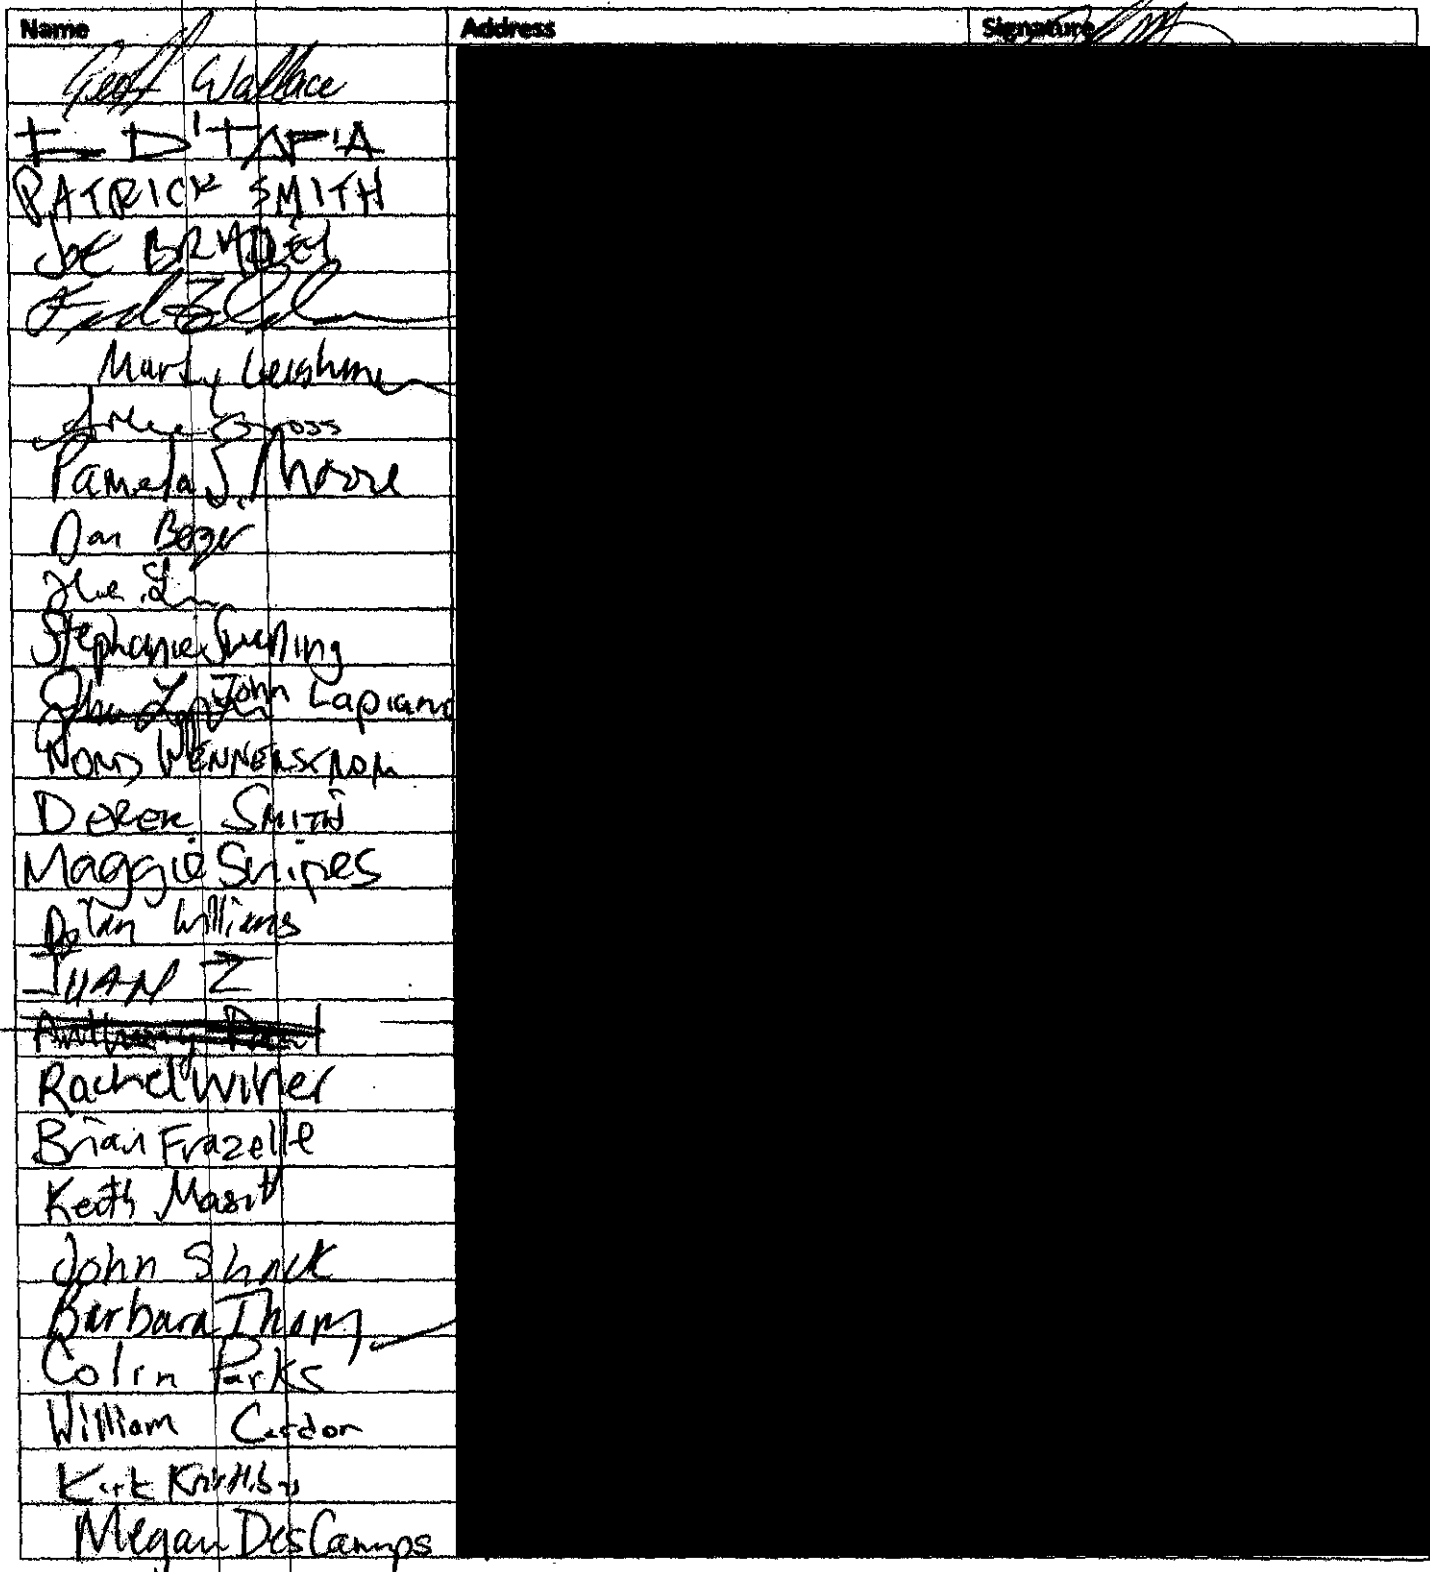 Name Address Signature
Geoff Wallace
PATRICK SMITH
JOE BRADLEY
Marty Leishman
Gross
Pamela S. Moore
Dan Beger
Stephanie
John Lapiano
NORD WENNERSTROM
DEREK SMITH
Maggie Snipes
Dylan Williams
JUAN Z
Anthony
Rachel Witler
Brian Frazelle
Keith
John Shack
Barbara
Colin Parks
William Cardon
Kirk
Megan DesCamps